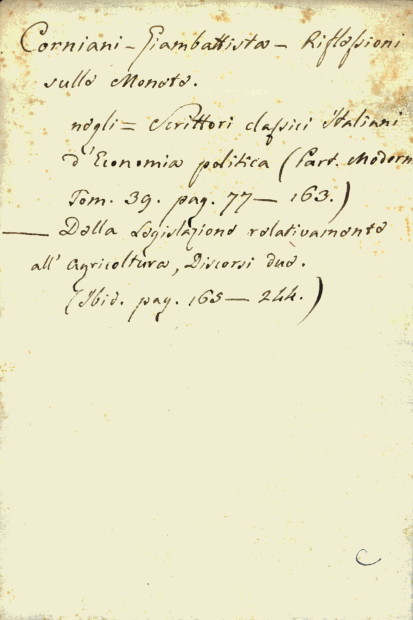 Corniani - Giambattista - Riflessioni
sulle Monete.
negli = Scrittori classici Italiani
d'Economia politica (Part. Modern
Tom. 39. pag. 77 — 163.)
— Della Legislazione relativamente
all' Agricoltura, Discorsi due.
(Ibid. pag. 165 — 244.)
C